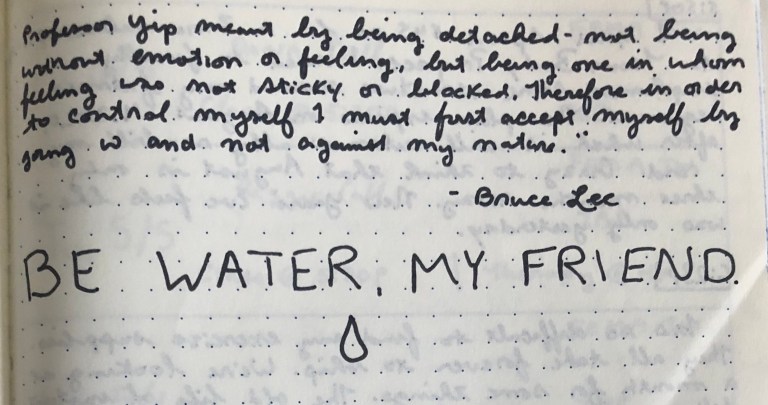 Professor Yip meant by being detached - not being
without emotion or feeling, but being one in whom
feeling was not sticky or blocked. Therefore in order
to control myself I must first accept myself by
going w and not against my nature."
- Bruce Lee
BE WATER, MY FRIEND.